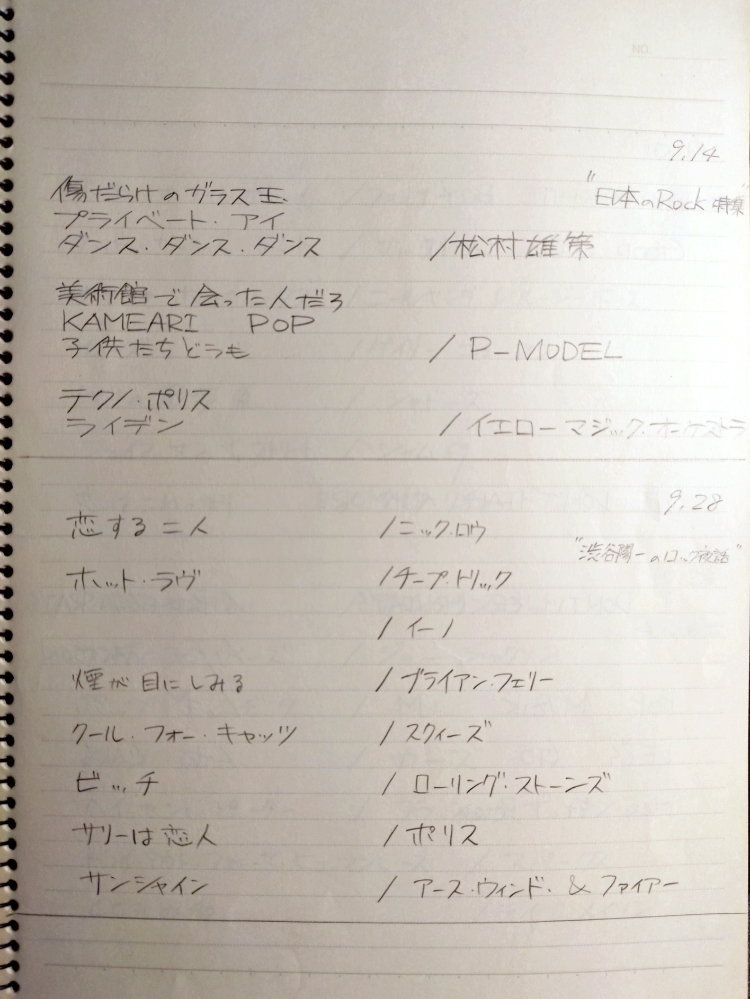 9.14
"日本のRock 特集"
傷だらけのガラス玉
プライベート・アイ
ダンス・ダンス・ダンス /松村雄策
美術館で会った人だろ
KAMEARI POP
子供たちどうも / P-MODEL
テクノ・ポリス
ライデン /イエローマジック・オーケストラ
9.28
"渋谷陽一のロック夜話"
恋する二人 /ニック・ロウ
ホット・ラヴ /チープ・トリック
/ イーノ
煙が目にしみる / ブライアン・フェリー
クール・フォー・キャッツ / スクィーズ
ビッチ / ローリング・ストーンズ
サリーは恋人 / ポリス
サンシャイン / アース・ウィンド・&ファイアー